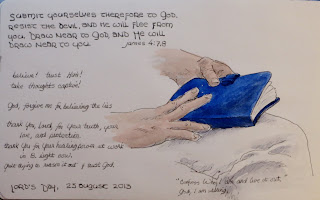 Submit yourselves therefore to God,
resist the devil, and he will flee from
you. Draw near to God, and He will
draw near to you. James 4:7,8
believe! trust Him!
take thoughts captive!
God, forgive me for believing the lies
thank you, Lord, for your truth, your
love, and protection.
thank you for your healing power at work
in me right now.
quit trying to makes it out & trust God.
"Confess who I am and live it out."
God, I am willing.
Lord's Day, 25 August 2013